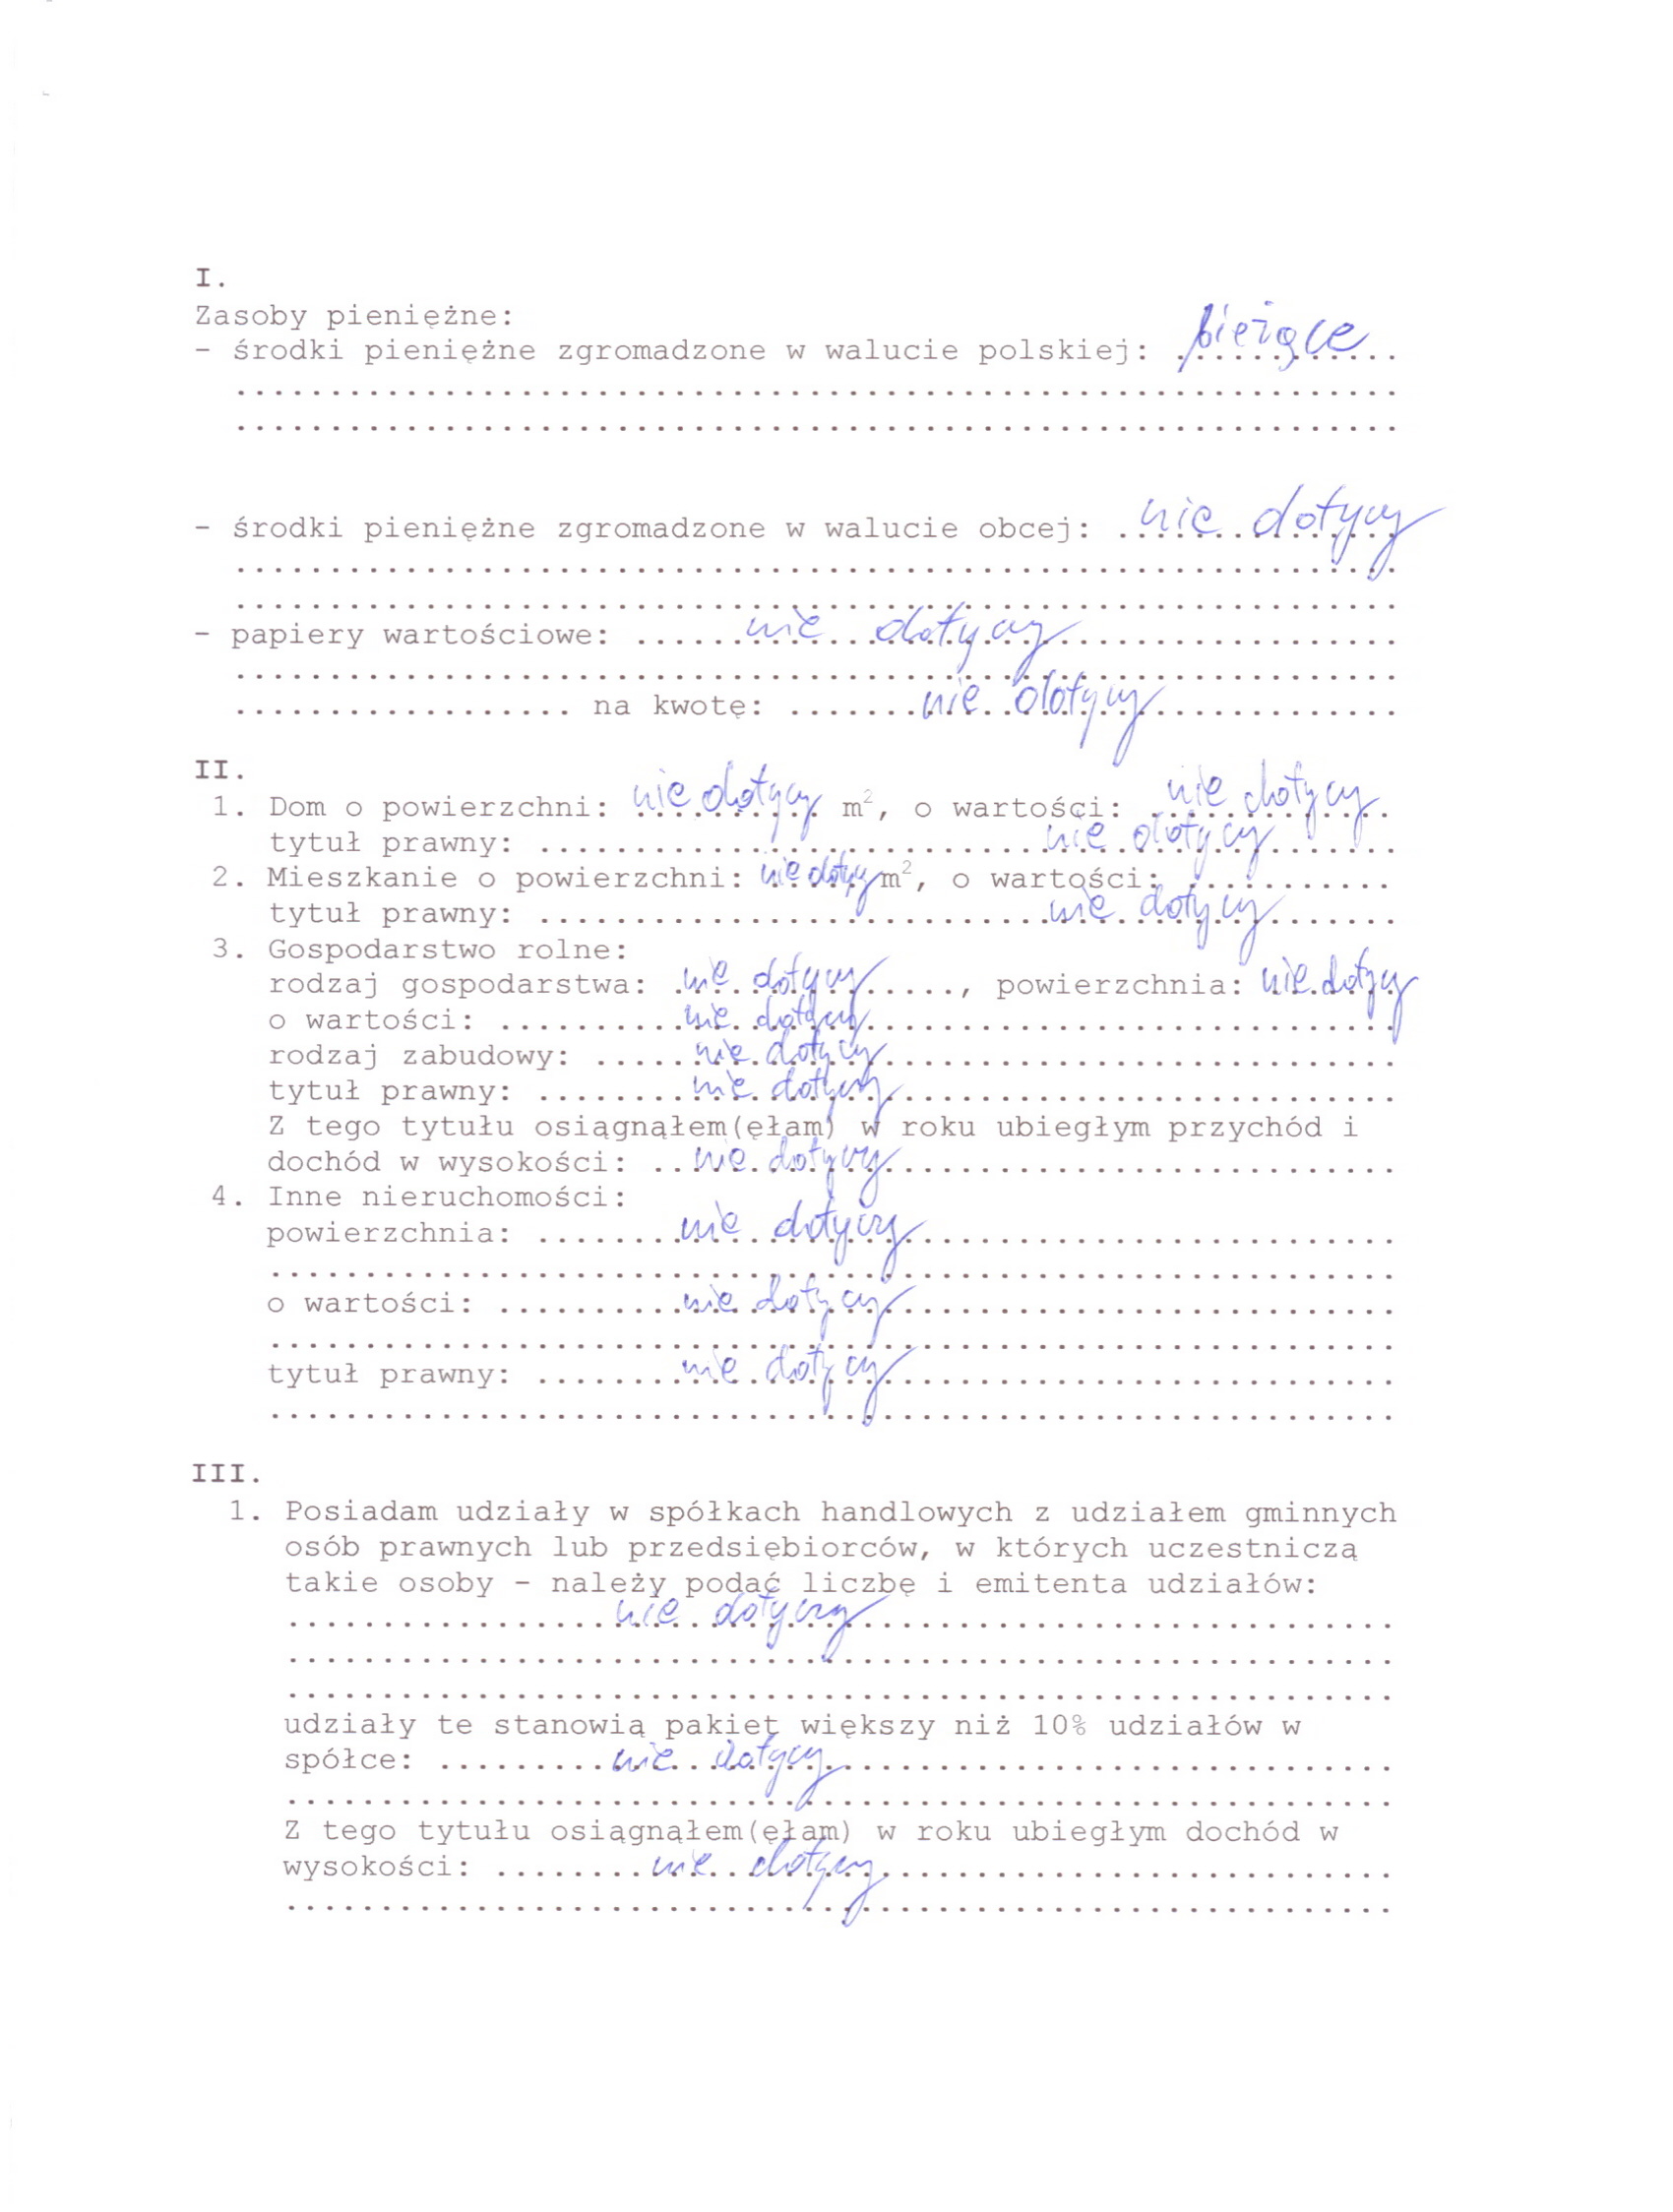 I.
Zasoby pieniężne:
- środki pieniężne zgromadzone w walucie polskiej: bieżące
- środki pieniężne zgromadzone w walucie obcej: nie dotyczy
- papiery wartościowe: nie dotyczy
na kwotę: nie dotyczy
II.
1. Dom o powierzchni: nie dotyczy m², o wartości: nie dotyczy
tytuł prawny: nie dotyczy
2. Mieszkanie o powierzchni: nie dotyczy m², o wartości:
tytuł prawny: nie dotyczy
3. Gospodarstwo rolne:
rodzaj gospodarstwa: nie dotyczy, powierzchnia: nie dotyczy
o wartości: nie dotyczy
rodzaj zabudowy: nie dotyczy
tytuł prawny: nie dotyczy
Z tego tytułu osiągnąłem(ęłam) w roku ubiegłym przychód i
dochód w wysokości: nie dotyczy
4. Inne nieruchomości:
powierzchnia: nie dotyczy
o wartości: nie dotyczy
tytuł prawny: nie dotyczy
III.
1. Posiadam udziały w spółkach handlowych z udziałem gminnych
osób prawnych lub przedsiębiorców, w których uczestniczą
takie osoby - należy podać liczbę i emitenta udziałów:
nie dotyczy
udziały te stanowią pakiet większy niż 10% udziałów w
spółce: nie dotyczy
Z tego tytułu osiągnąłem(ęłam) w roku ubiegłym dochód w
wysokości: nie dotyczy